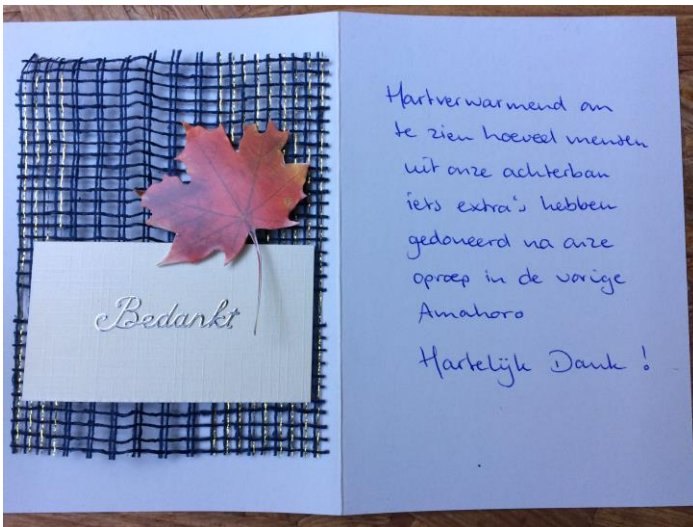 Bedankt
Hartverwarmend om
te zien hoeveel mensen
uit onze achterban
iets extra's hebben
gedoneerd na onze
oproep in de vorige
Amahoro
Hartelijk Dank !